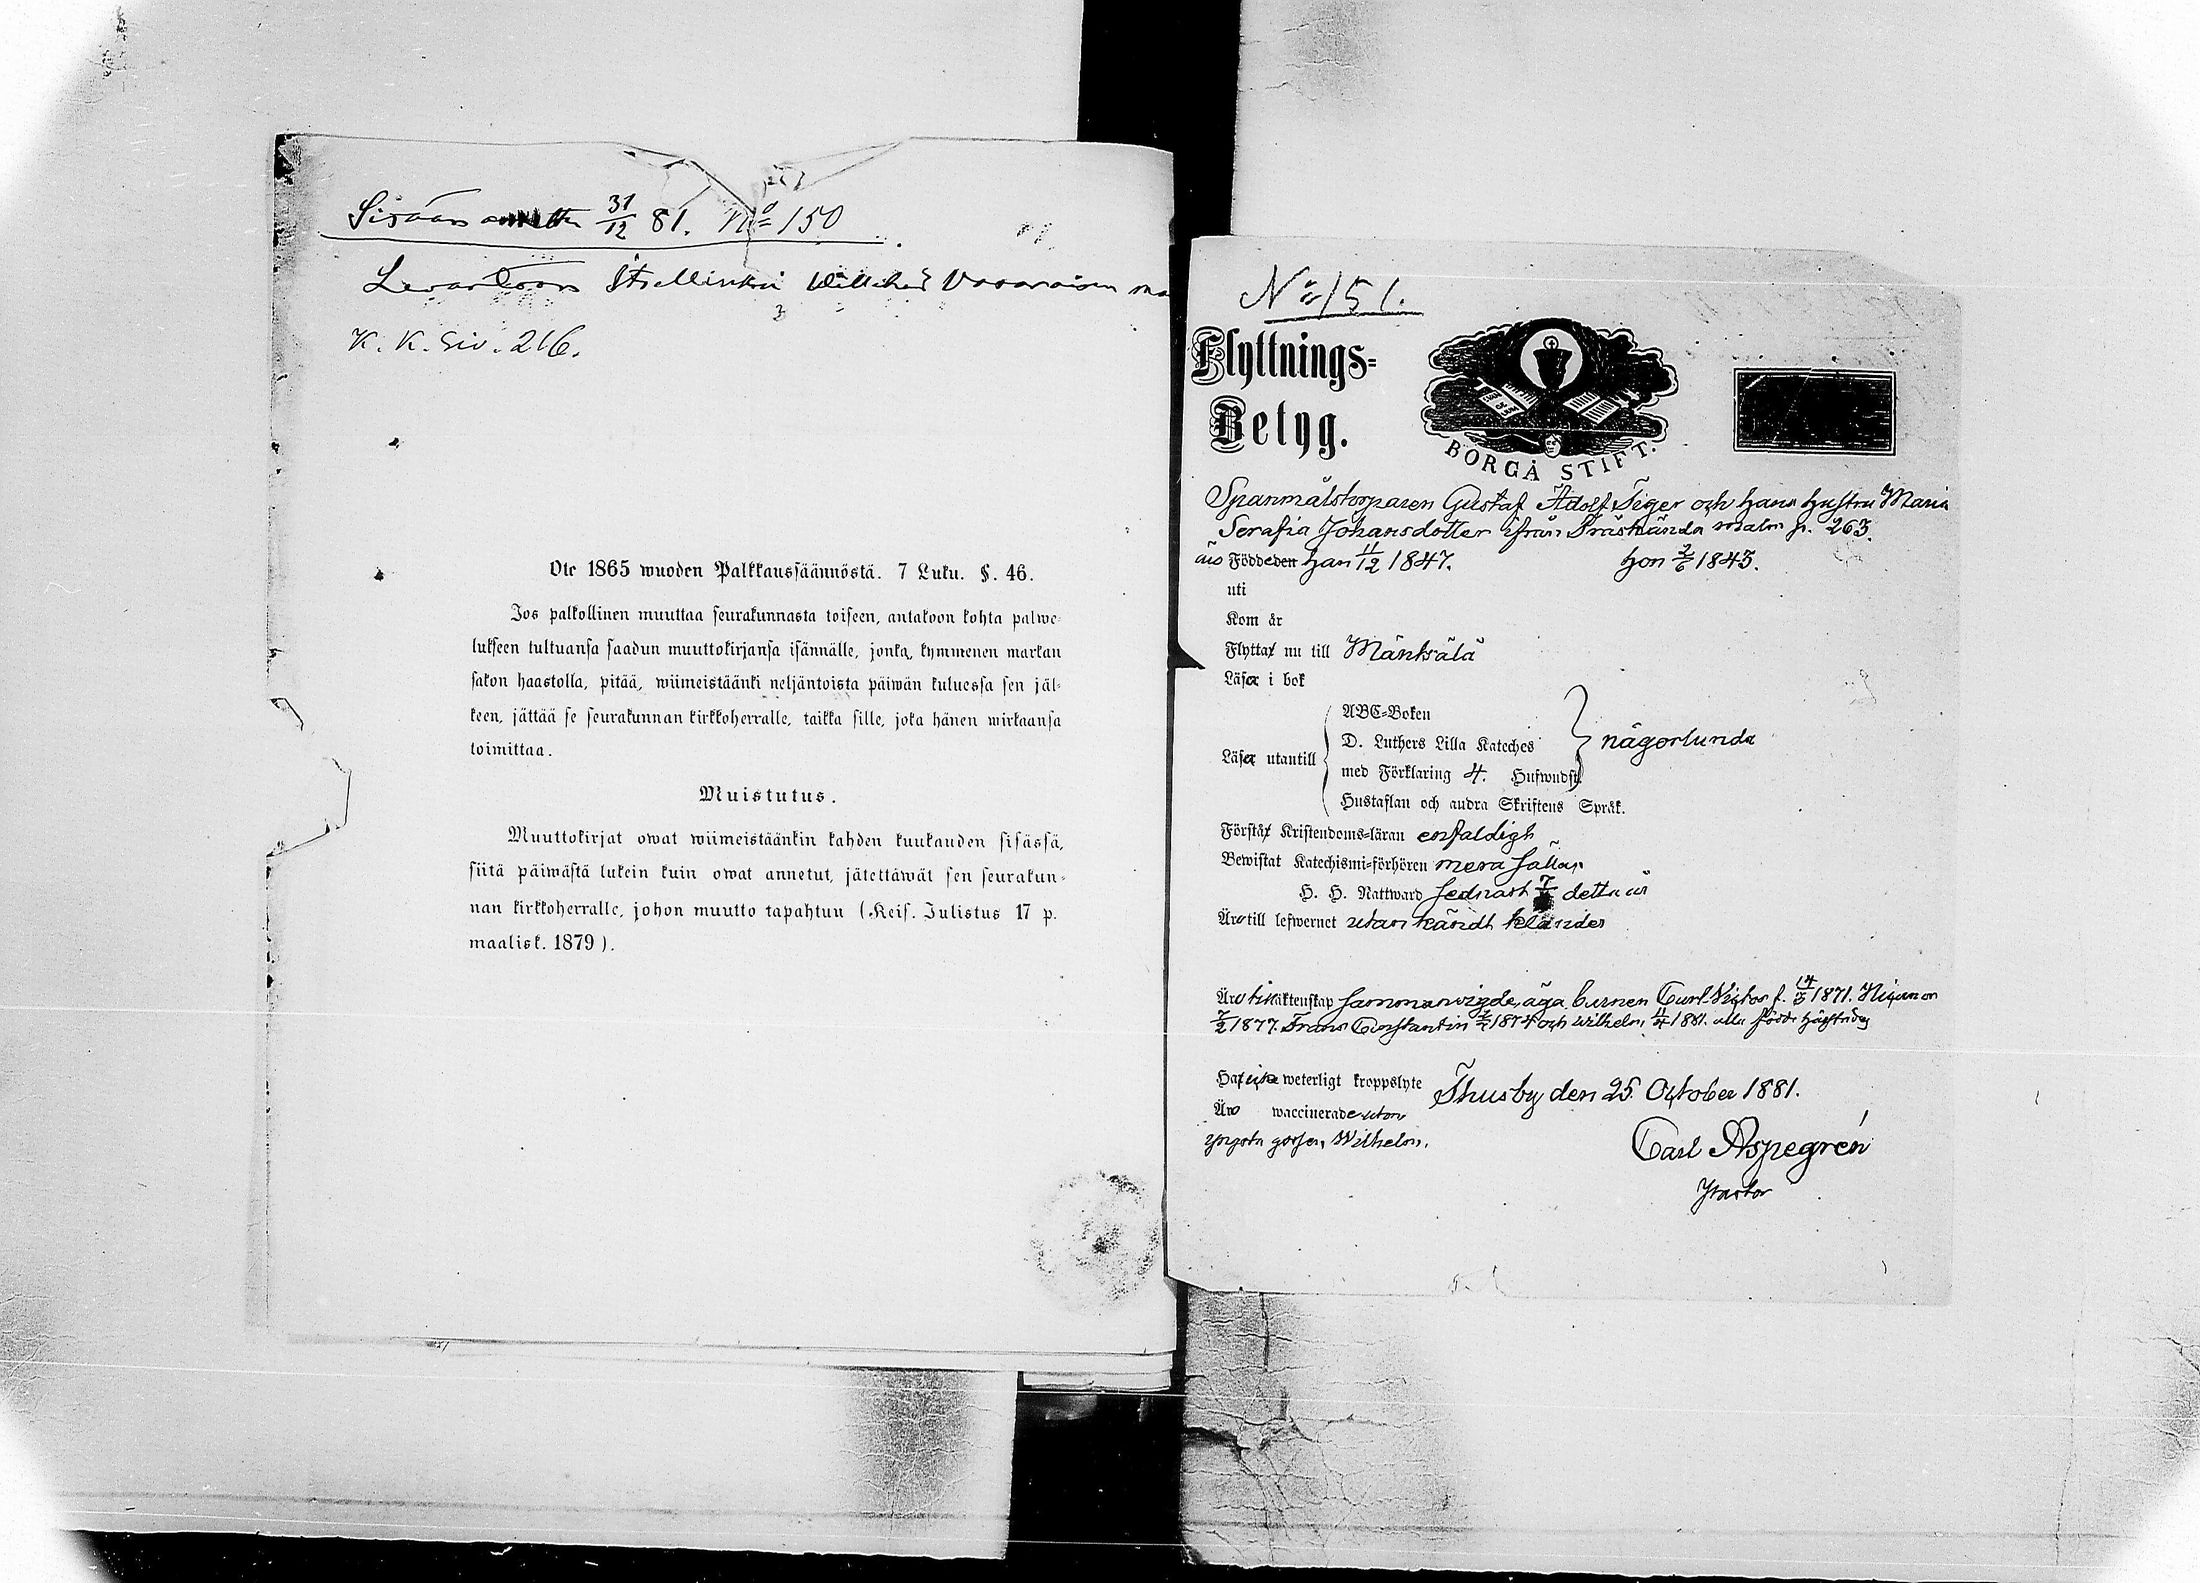 Sisään annettu 31/12 81. No 150
K. K. siv. 216.
Ote 1865 wuoden Palkkaussäännöstä. 7 Luku. §. 46.
Jos palkollinen muuttaa seurakunnasta toiseen, antakoon kohta palwe-
lukseen tultuansa saadun muuttokirjansa isännälle, jonka, kymmenen markan
sakon haastolla, pitää, wiimeistäänki neljäntoista päiwän kuluessa sen jäl-
keen, jättää se seurakunnan kirkkoherralle, taikka sille, joka hänen wirkaansa
toimittaa.
Muistutus.
Muuttokirjat owat wiimeistäänkin kahden kuukauden sisässä,
siitä päiwästä lukein kuin owat annetut, jätettäwät sen seurakun-
nan kirkkoherralle, johon muutto tapahtuu (Keis. Julistus 17 p.
maalisk. 1879).
No 151.
Flyttnings-
Betyg.
BORGÅ STIFT.
Spanmålstorparen Gustaf Adolf Tiger och hans hustru Maria
Serafia Johansdotter ifrån Träskända pag. 263.
äro Födde den han 11/12 1847. hon 2/6 1843.
uti
Kom år
Flytta nu till Mäntsälä
Läsa i bok
ABC-Boken
D. Luthers Lilla Kateches
Läsa utantill någorlunda
med Förklaring 4. Hufwudst.
Hustaflan och andra Skriftens Språk.
Förstå Kristendoms-läran enfaldigt
Bewistat Katechismi-förhören mera sällan
H. H. Nattward sednast 7/ detta år
Äro till lefwernet utan kändt klander
Äro i äktenskap sammanvigde, äga barnen Carl Victor f. 14/5 1871. Nicanor
7/2 1877. Frans Constantin 1874 och Wilhelm 11/4 1881. alla födde härstädes
Ha icke weterligt kroppslyte Thusby den 25 October 1881.
Äro waccinerade utom
yngsta gossen Wilhelm.
Carl Aspegrén
Pastor